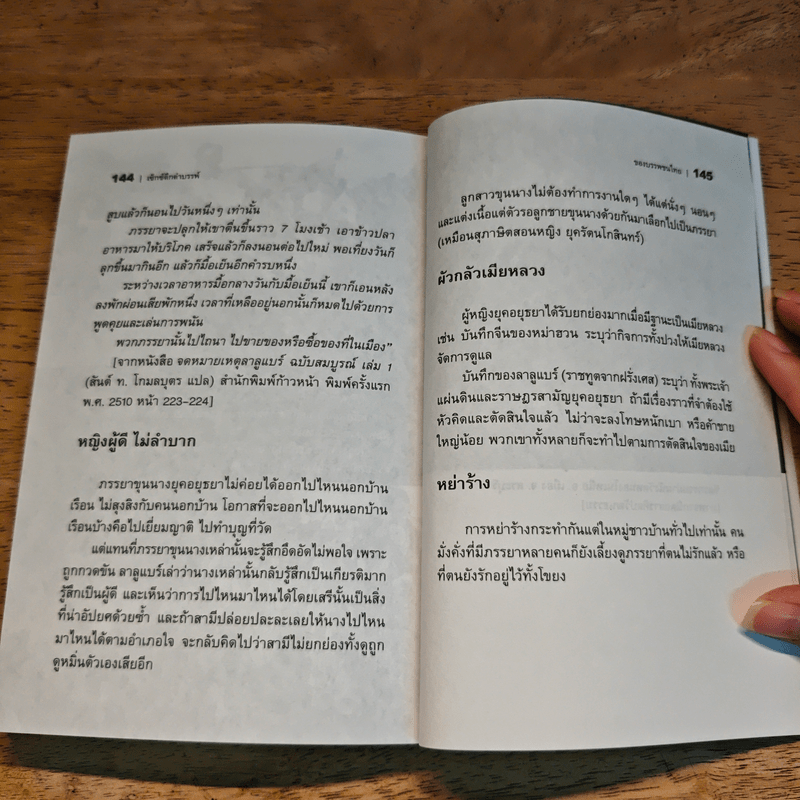 144 | เซ็กซ์ดึกดำบรรพ์
สูบแล้วก็นอนไปวันหนึ่งๆ เท่านั้น
ภรรยาจะปลุกให้เขาตื่นขึ้นราว 7 โมงเช้า เอาข้าวปลา
อาหารมาให้บริโภค เสร็จแล้วก็ลงนอนต่อไปใหม่ พอเที่ยงวันก็
ลุกขึ้นมากินอีก แล้วก็มื้อเย็นอีกคำรบหนึ่ง
ระหว่างเวลาอาหารมื้อกลางวันกับมื้อเย็นนี้ เขาก็เอนหลัง
ลงพักผ่อนเสียพักหนึ่ง เวลาที่เหลืออยู่นอกนั้นก็หมดไปด้วยการ
พูดคุยและเล่นการพนัน
พวกภรรยานั้นไปไถนา ไปขายของหรือซื้อของที่ในเมือง"
[จากหนังสือ จดหมายเหตุลาลูแบร์ ฉบับสมบูรณ์ เล่ม 1
(สันต์ ท. โกมลบุตร แปล) สำนักพิมพ์ก้าวหน้า พิมพ์ครั้งแรก
พ.ศ. 2510 หน้า 223-224]
หญิงผู้ดี ไม่ลำบาก
ภรรยาขุนนางยุคอยุธยาไม่ค่อยได้ออกไปไหนนอกบ้าน
เรือน ไม่สุงสิงกับคนนอกบ้าน โอกาสที่จะออกไปไหนนอกบ้าน
เรือนบ้างคือไปเยี่ยมญาติ ไปทำบุญที่วัด
แต่แทนที่ภรรยาขุนนางเหล่านั้นจะรู้สึกอึดอัดไม่พอใจ เพราะ
ถูกกวดขัน ลาลูแบร์เล่าว่านางเหล่านั้นกลับรู้สึกเป็นเกียรติมาก
รู้สึกเป็นผู้ดี และเห็นว่าการไปไหนมาไหนได้โดยเสรีนั้นเป็นสิ่ง
ที่น่าอัปยศด้วยซ้ำ และถ้าสามีปล่อยปละละเลยให้นางไปไหน
มาไหนได้ตามอำเภอใจ จะกลับคิดไปว่าสามีไม่ยกย่องทั้งดูถูก
ดูหมิ่นตัวเองเสียอีก
ของบรรพชนไทย | 145
ลูกสาวขุนนางไม่ต้องทำการงานใดๆ ได้แต่นั่งๆ นอนๆ
และแต่งเนื้อแต่งตัวรอลูกชายขุนนางด้วยกันมาเลือกไปเป็นภรรยา
(เหมือนสุภาษิตสอนหญิง ยุครัตนโกสินทร์)
ผัวกลัวเมียหลวง
ผู้หญิงยุคอยุธยาได้รับยกย่องมากเมื่อมีฐานะเป็นเมียหลวง
เช่น บันทึกจีนของหม่าฮวน ระบุว่ากิจการทั้งปวงให้เมียหลวง
จัดการดูแล
บันทึกของลาลูแบร์ (ราชทูตจากฝรั่งเศส) ระบุว่า ทั้งพระเจ้า
แผ่นดินและราษฎรสามัญยุคอยุธยา ถ้ามีเรื่องราวที่จำต้องใช้
หัวคิดและตัดสินใจแล้ว ไม่ว่าจะลงโทษหนักเบา หรือค้าขาย
ใหญ่น้อย พวกเขาทั้งหลายก็จะทำไปตามการตัดสินใจของเมีย
หย่าร้าง
การหย่าร้างกระทำกันแต่ในหมู่ชาวบ้านทั่วไปเท่านั้น คน
มั่งคั่งที่มีภรรยาหลายคนก็ยังเลี้ยงดูภรรยาที่ตนไม่รักแล้ว หรือ
ที่ตนยังรักอยู่ไว้ทั้งโขยง